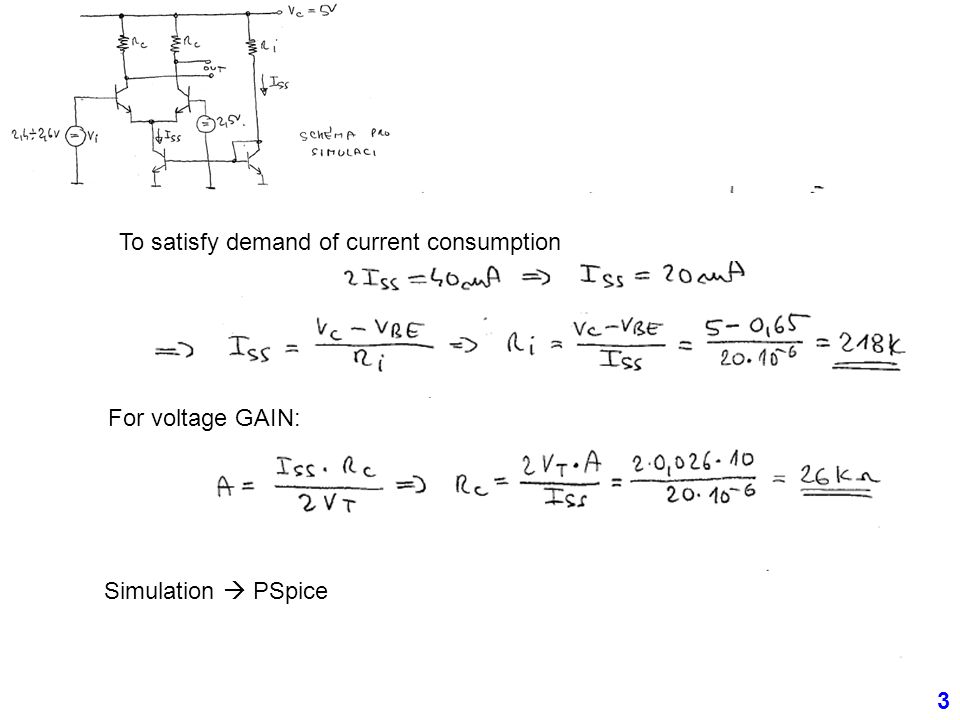 Vc = 5V
Rc Rc Ri
OUT
Iss
2,4÷2,6V Vi Iss 2,5V.
SCHÉMA PRO
SIMULACI
To satisfy demand of current consumption
2Iss = 40uA => Iss = 20uA
=> Iss = (Vc - VBE)/Ri => Ri = (Vc - VBE)/Iss = (5 - 0,65)/(20.10^-6) = 218k
For voltage GAIN:
A = (Iss . Rc)/(2VT) => Rc = (2VT . A)/Iss = (2.0,026.10)/(20.10^-6) = 26KΩ
Simulation → PSpice
3